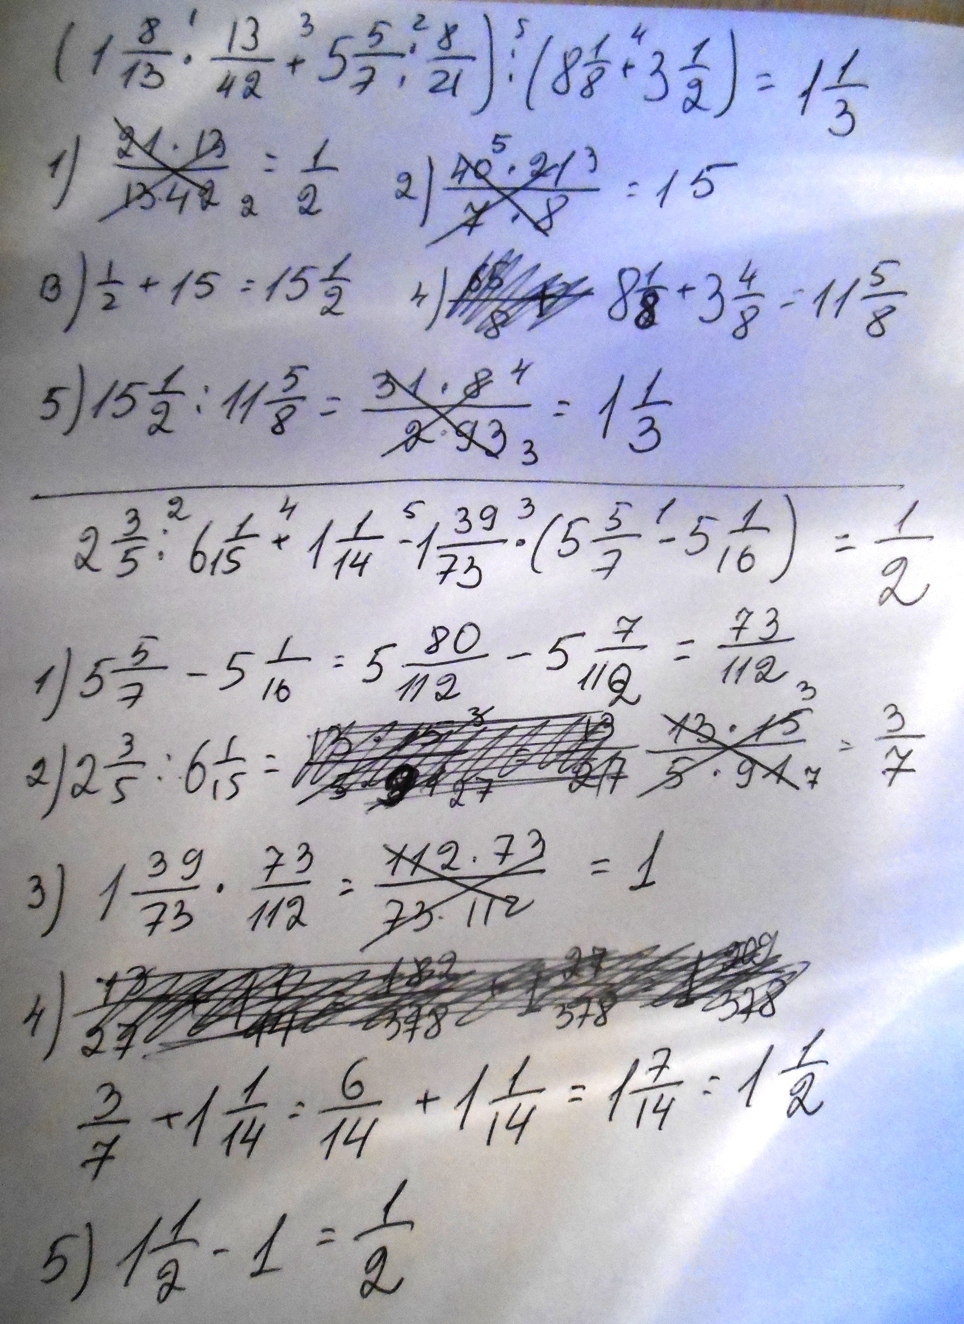 (1 8/13 · 13/42 + 5 5/7 : 8/21) : (8 1/8 + 3 1/2) = 1 1/3
1) 21 · 13 / 13 · 42 2 = 1/2 2) 40 5 · 21 3 / 7 · 8 = 15
3) 1/2 + 15 = 15 1/2 4) 8 1/8 + 3 4/8 = 11 5/8
5) 15 1/2 : 11 5/8 = 31 · 8 4 / 2 · 93 3 = 1 1/3
2 3/5 : 6 1/15 + 1 1/14 - 1 39/73 · (5 5/7 - 5 1/16) = 1/2
1) 5 5/7 - 5 1/16 = 5 80/112 - 5 7/112 = 73/112
2) 2 3/5 : 6 1/15 = 13 · 15 3 / 5 · 91 7 = 3/7
3) 1 39/73 · 73/112 = 112 · 73 / 73 · 112 = 1
4)
3/7 + 1 1/14 = 6/14 + 1 1/14 = 1 7/14 = 1 1/2
5) 1 1/2 - 1 = 1/2